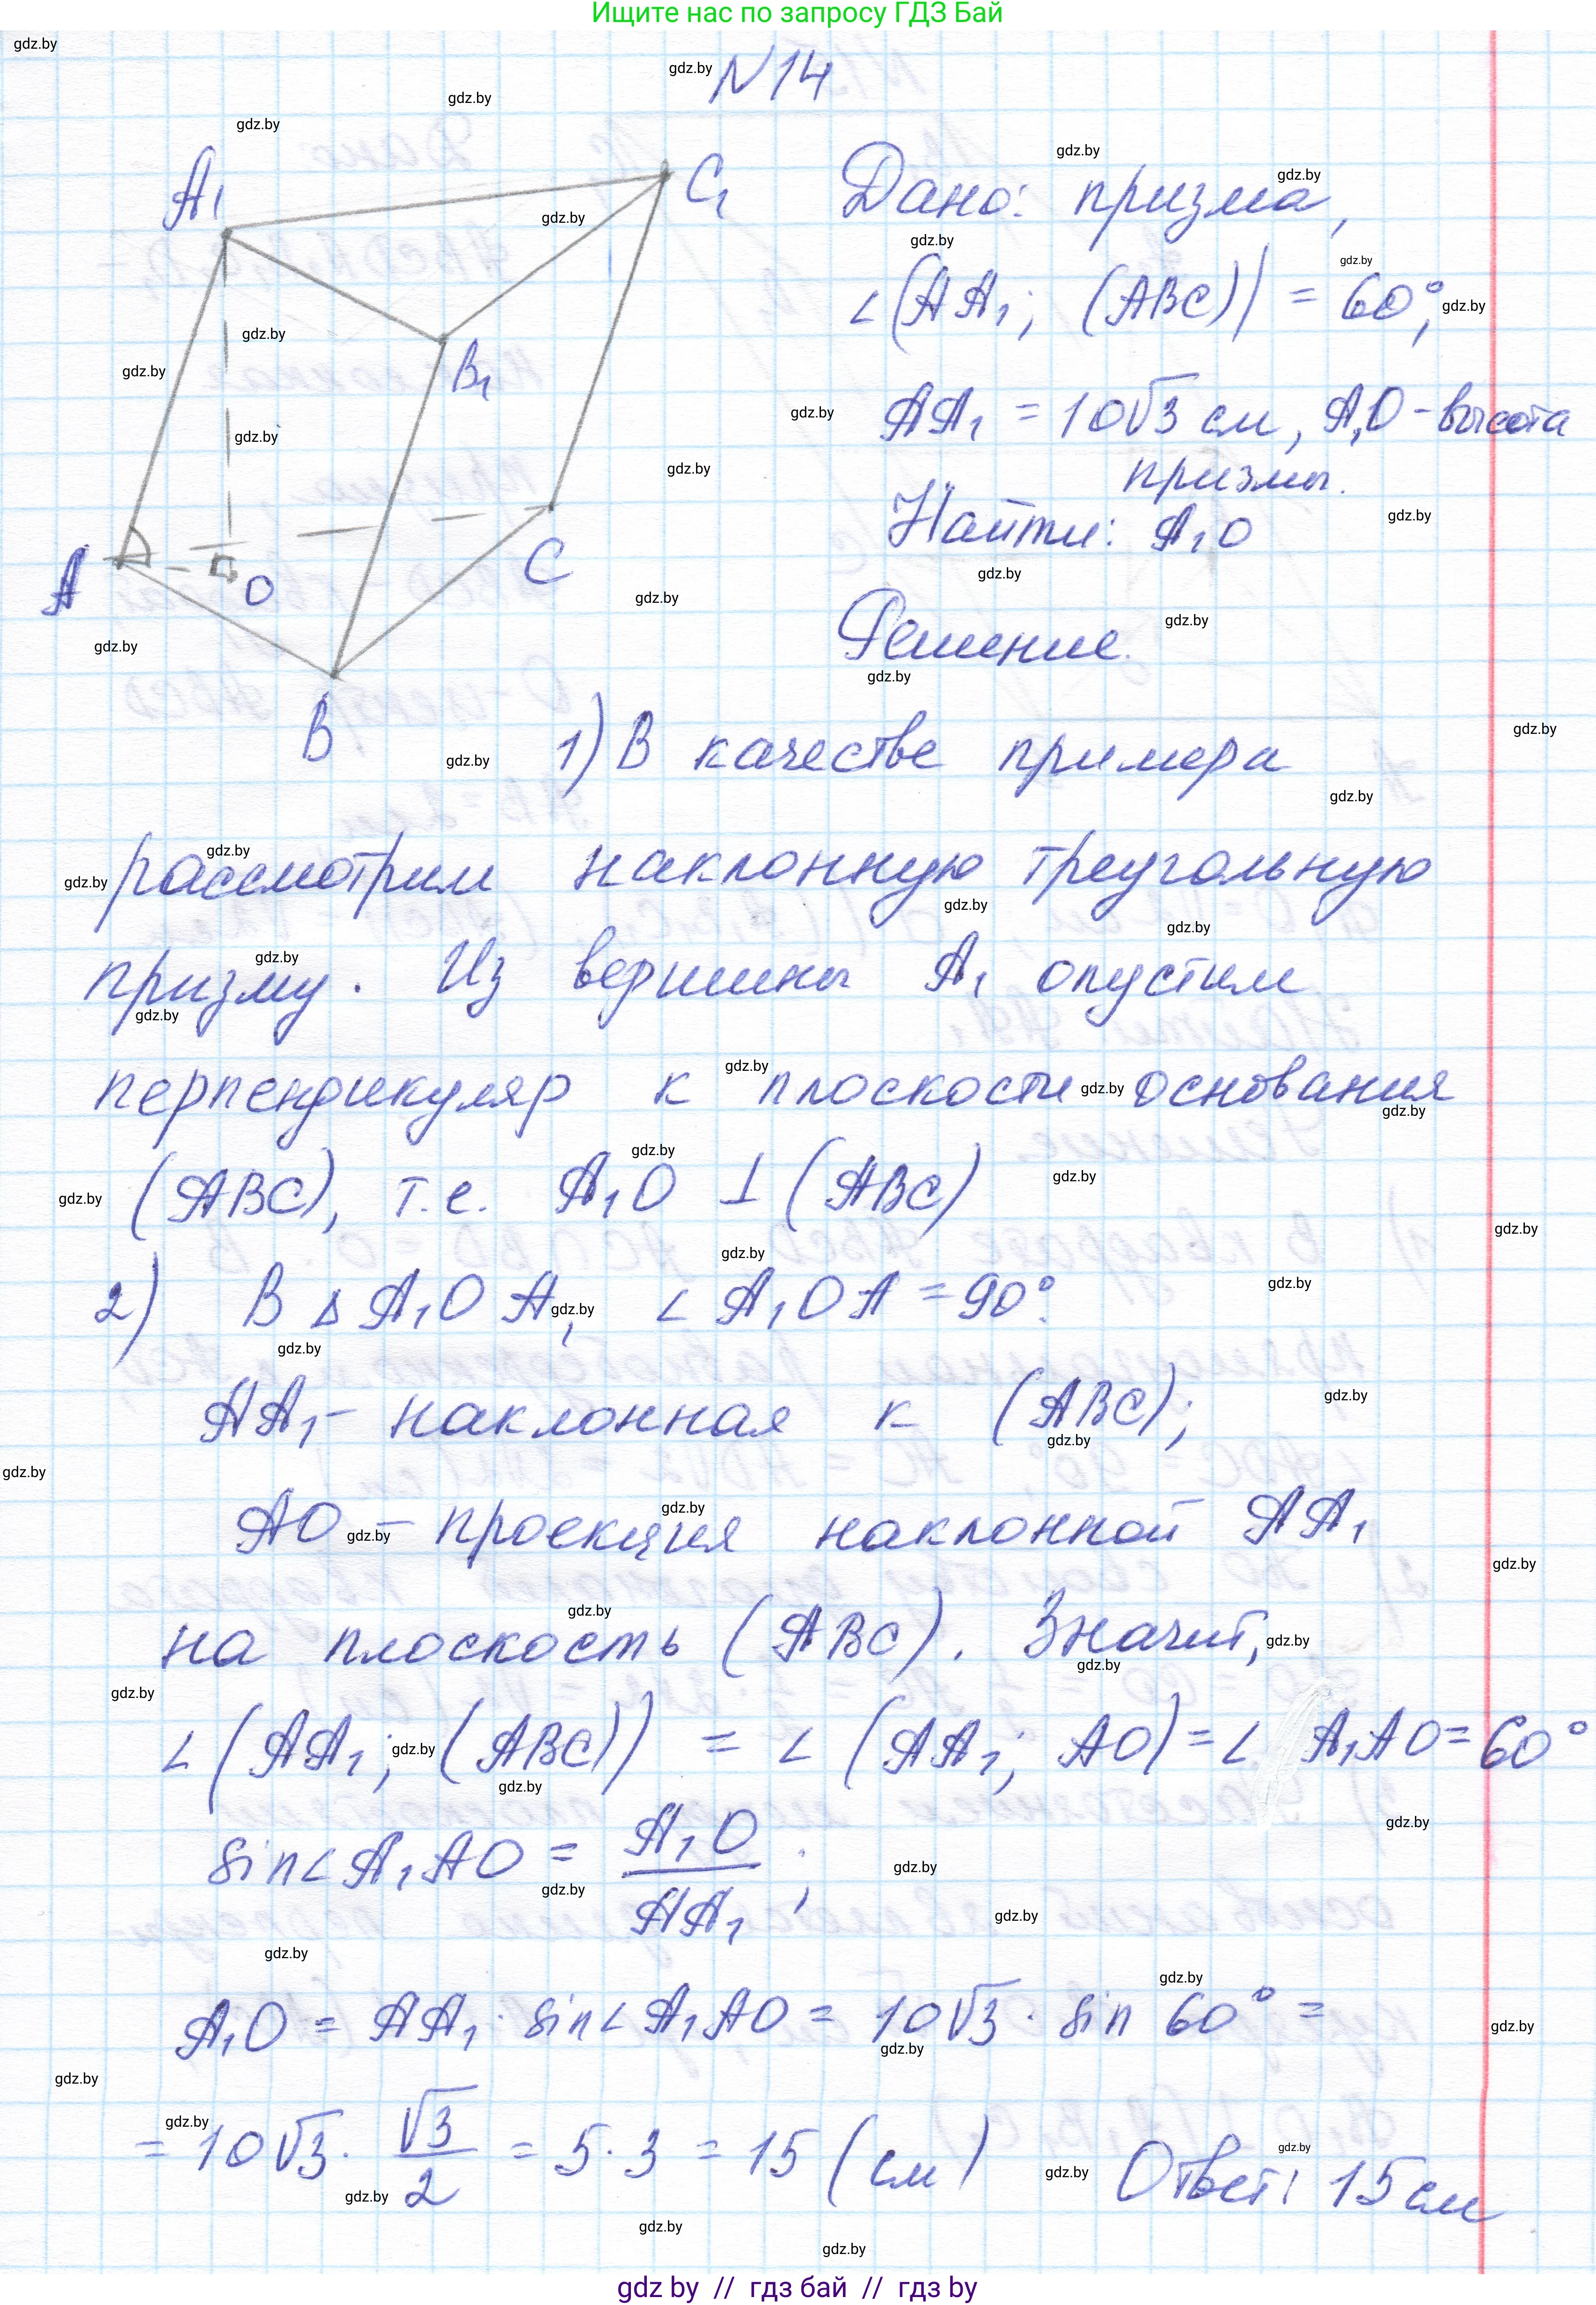 Ищите нас по запросу ГДЗ Бай
N14
A₁
C₁
B₁
A
O
C
B
Дано: призма,
∠(AA₁; (ABC)) = 60°,
AA₁ = 10√3 см, A₁O - высота
призмы.
Найти: A₁O
Решение.
1) В качестве примера
рассмотрим наклонную треугольную
призму. Из вершины A₁ опустим
перпендикуляр к плоскости основания
(ABC), т.е. A₁O ⊥ (ABC)
2) В Δ A₁OA, ∠A₁OA = 90°.
AA₁ - наклонная к (ABC);
AO - проекция наклонной AA₁
на плоскость (ABC). Значит,
∠(AA₁; (ABC)) = ∠(AA₁; AO) = ∠ A₁AO = 60°
sin∠A₁AO = A₁O / AA₁ ;
A₁O = AA₁ · sin∠A₁AO = 10√3 · sin 60° =
= 10√3 · √3 / 2 = 5·3 = 15 (см) Ответ: 15 см
gdz.by
gdz by // гдз бай // гдз by